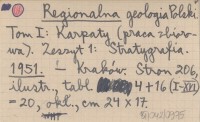 Regionalna geologia Polski.
Tom I: Karpaty (praca zbioro-
wa). Zeszyt 1: Stratygrafia.
1951. — Kraków. Stron 206,
ilustr., tabl. 4+16 (I-XVI)
= 20, okł., cm 24 x 17.